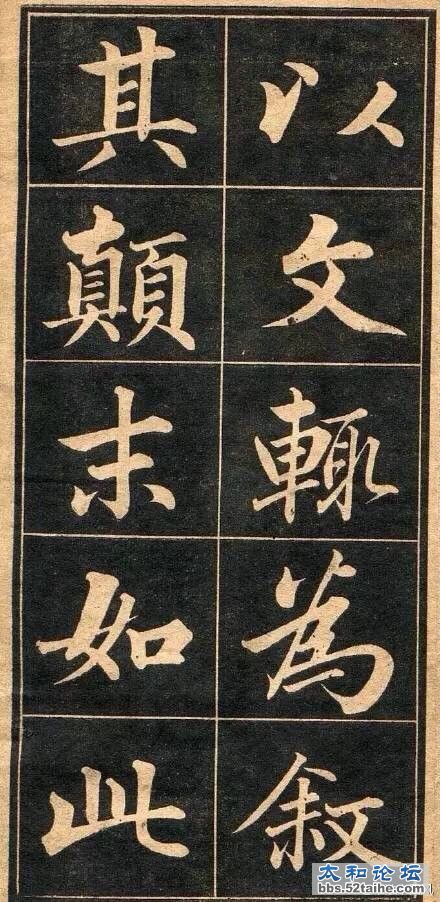 以文輙為叙
其顛末如此
太和论坛
bbs.52taihe.com